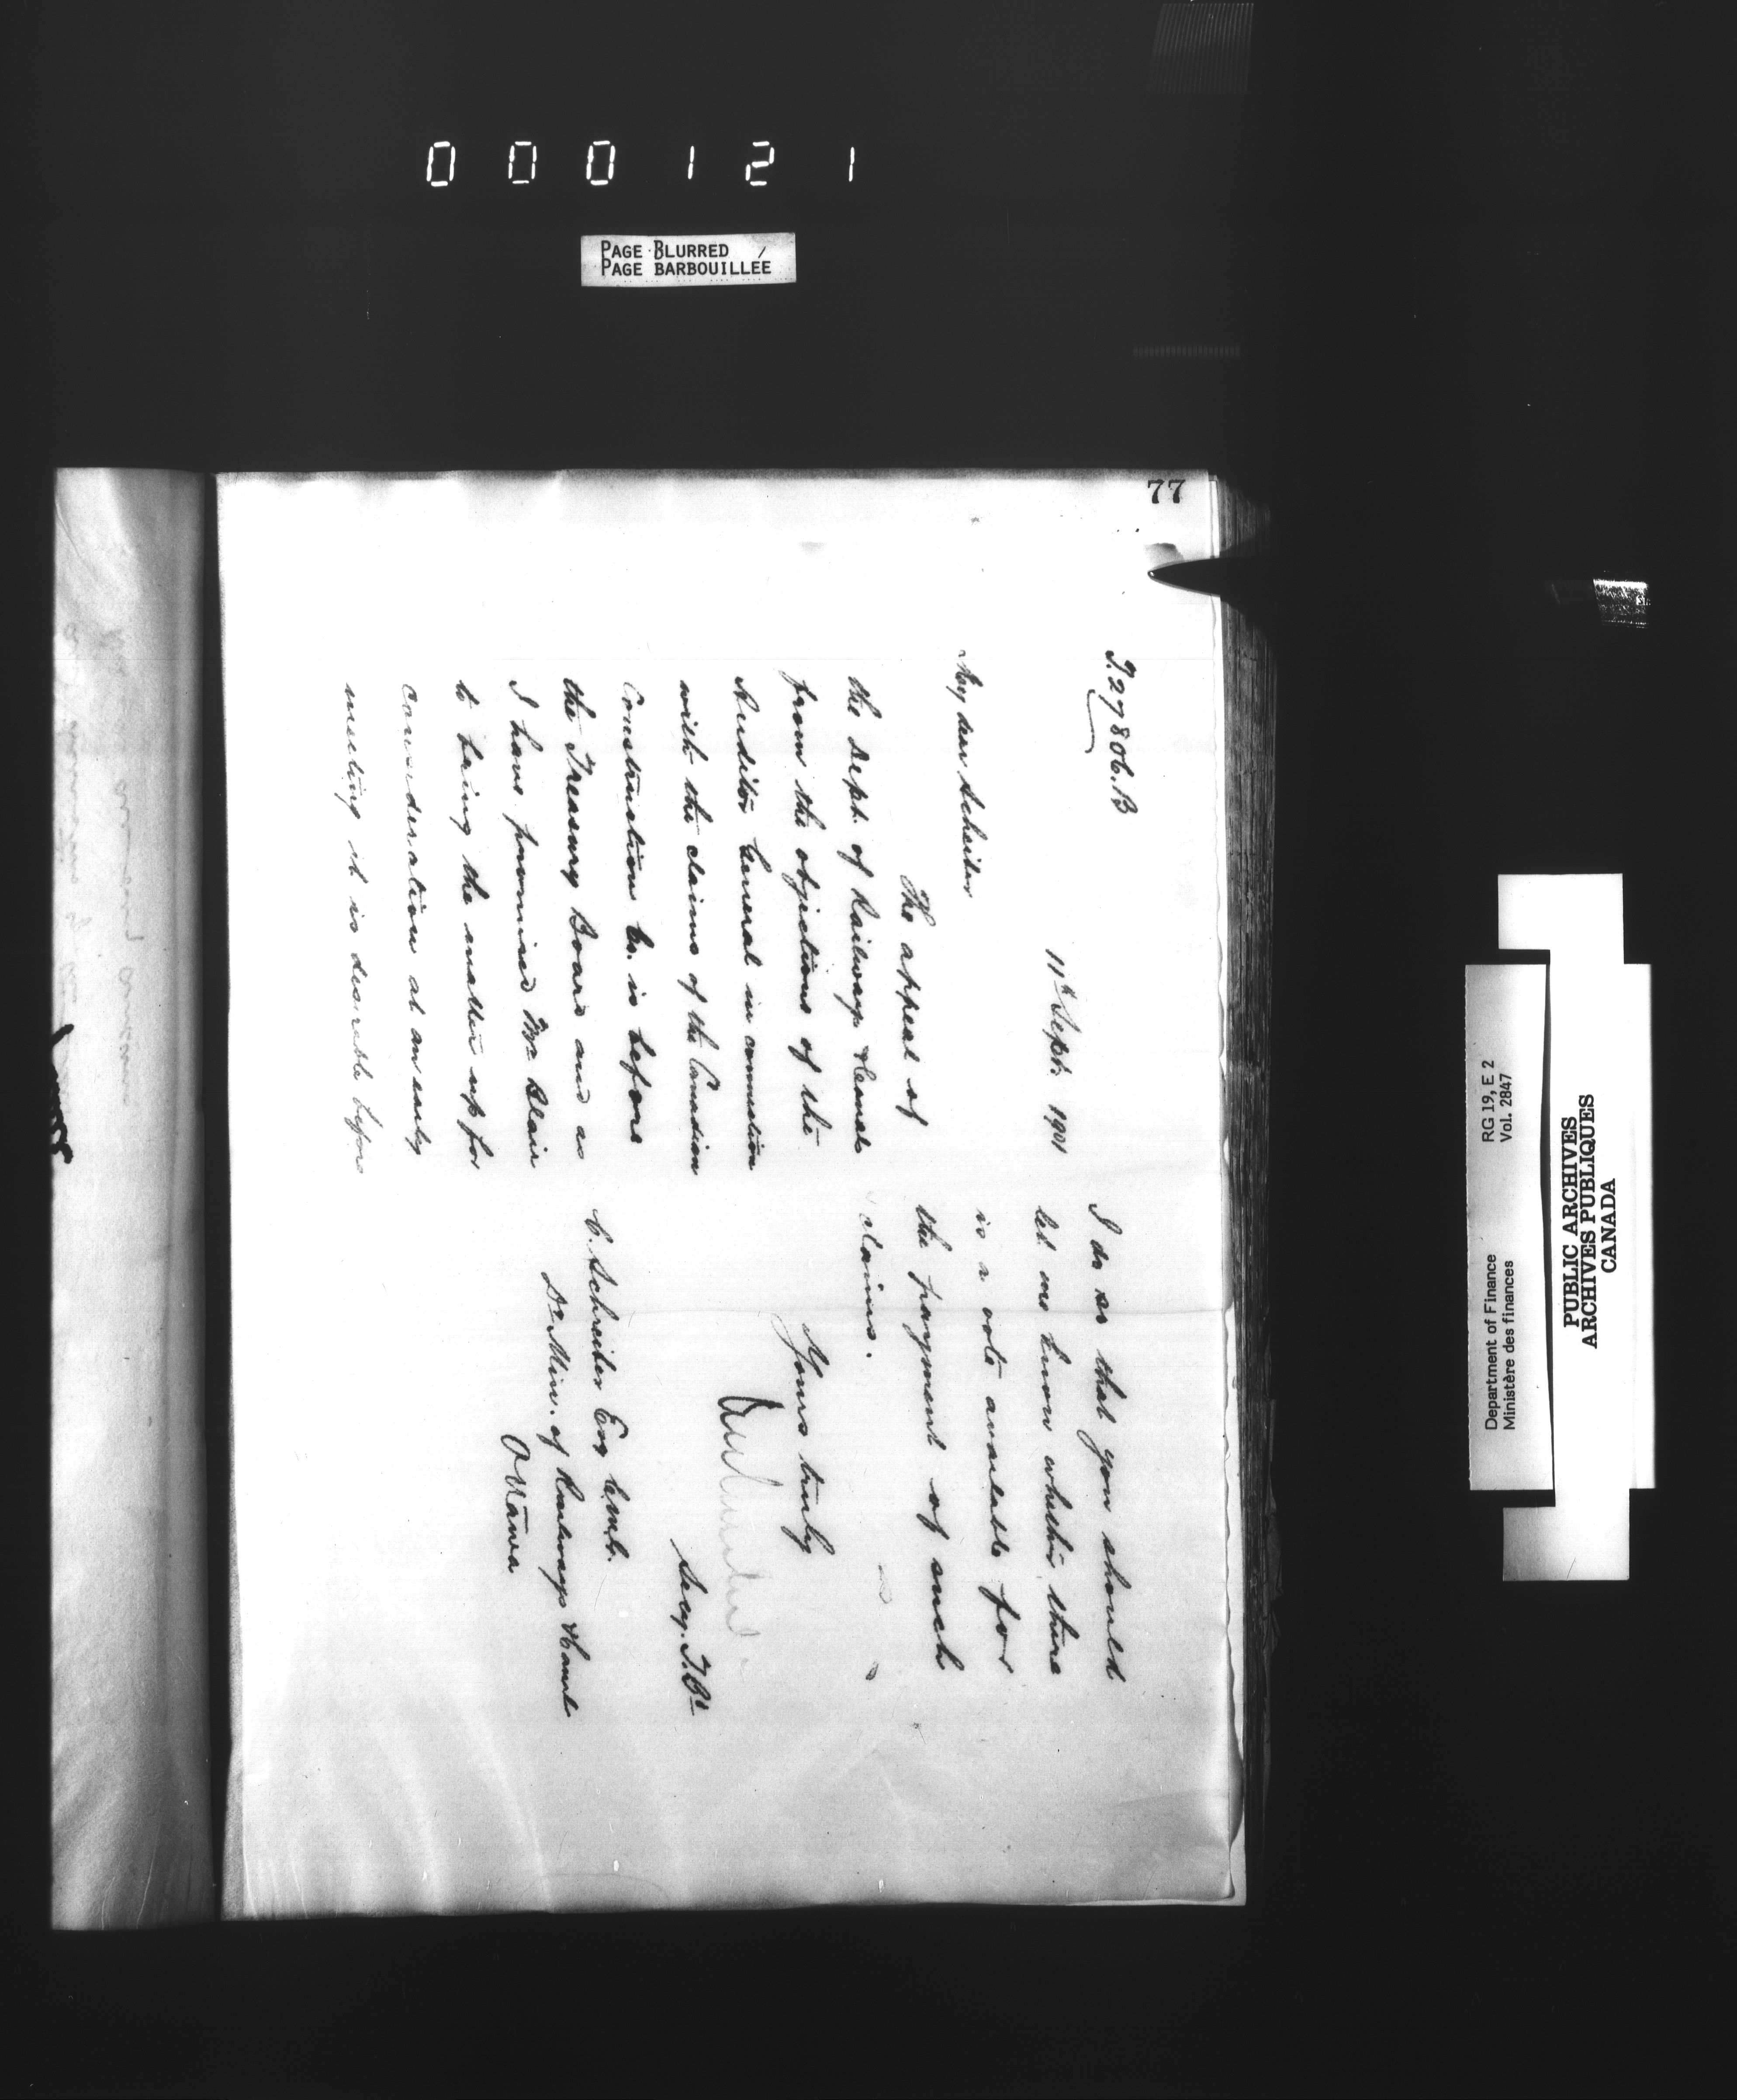 000121
PAGE BLURRED
PAGE BARBOUILLÉE
77
T. 27806. B
11th Sept. 1901
My dear Schreiber
The appeal of
the Dept. of Railways & Canals
from the objections of the
Auditor General in connection
with the claims of the Canadian
Construction Co. is before
the Treasury Board and as
I have promised Mr Blair
to bring the matter up for
consideration at an early
meeting it is desirable before
I do so that you should
let me know whether there
is a vote available for
the payment of such
claims.
Yours truly
Secy. T. Bd
C. Schreiber Esq C.M.G.
Dy Min. of Railways & Canals
Ottawa
RG 19, E 2
Vol. 2847
Department of Finance
Ministère des finances
PUBLIC ARCHIVES
ARCHIVES PUBLIQUES
CANADA